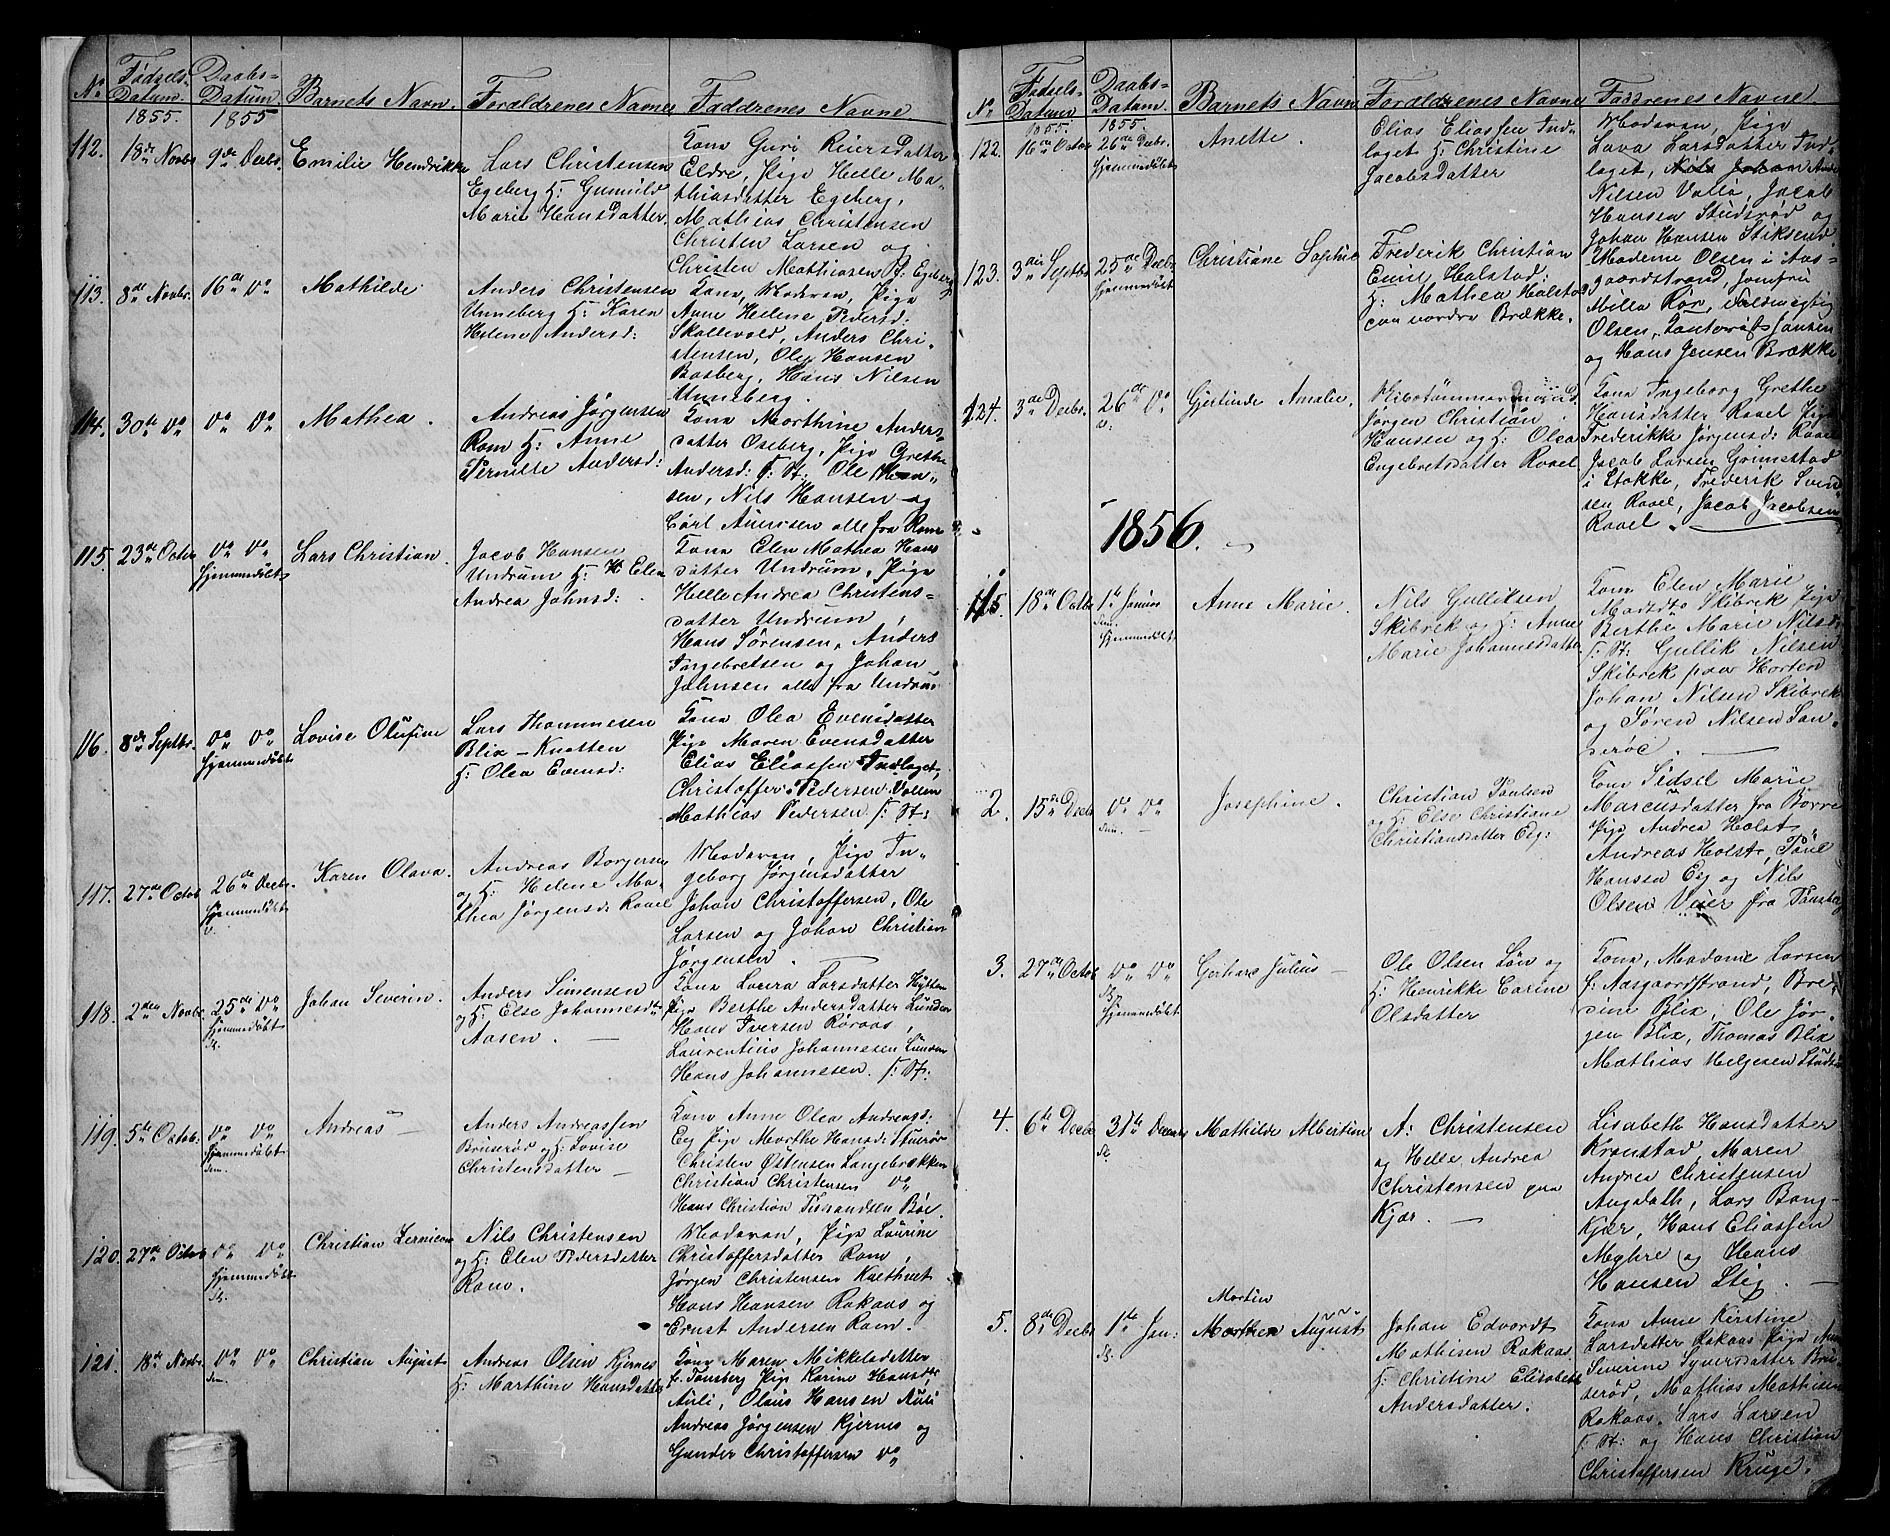 No Fødsels-Datum. Daabs-Datum Barnets Navn. Forældrenes Navne Faddrenes Navne
1855. 1855
112. 18de Novbr 9de Decbr. Emilie Hendrikke
Lars Christensen
Egeberg H: Gunnild
Marie Hansdatter.
Kona Guri Reiersdatter
Eldre, Pige Helle Ma-
thiasdatter Egeberg,
Mathias Christensen
Christen Larsen og
Christen Mathiasen B: Egeberg
113. 8de Novbr. 16de Do Mathilde
Anders Christensen
Unneberg H: Karen
Helene Andersd:
Kona, Moderen, Pige
Anne Helene Pedersd:
Skallevold, Anders Chri-
stensen, Ole Hansen
Basberg, Hans Nilsen
Unneberg.
114. 30te Do Do Do Mathea.
Andreas Jørgensen
Rom H: Anne
Pernille Andersd:
Kona Marthine Anders-
datter Oseberg, Pige Grethe
Andersd: S. St. Ole Han-
sen, Nils Hansen og
Carl Aunssen alle fra Rom
115. 23de Octbr Do Do Lars Christian.
Hjemmedøbt
Jacob Hansen
Undrum H: Elen
Andrea Johnsd:
Kona Elen Mathea Hans
datter Undrum, Pige
Helle Andrea Christens-
datter Undrum,
Hans Sørensen, Anders
Ingebretsen og Johan
Johnsen alle fra Undrum
116. 8de Septbr. Do Do Lovise Olufine
Hjemmedøbt
Lars Thommesen
Blix - Knatten
H: Olea Evensd:
Kona Olea Evensdatter
Pige Maren Evensdatter
Elias Eliassen Indlaget,
Christoffer Pedersen Vollen
Mathias Pedersen S. St:
117. 27de Octob 26de Decbr. Karen Olava.
Hjemmedøbt
Andreas Borgersen
og H: Helene Ma-
thea Jørgensd: Ravel
Moderen, Pige In-
geborg Jørgensdatter
Johan Christoffersen, Ole
Larsen og Johan Christian
Jørgensen.
118. 2den Novbr. 25de Do Johan Severin.
Hjemmedøbt
Anders Simensen
og H: Else Johannesdtr
Aasen.
Kona Laura Larsdatter Hytten
Pige Berthe Andersdatter Lunden
Hans Iversen Røraas,
Laurentius Johannesen Lunden
Hans Johannesen. S. St.
119. 5te Octob. Do Do Andreas
Hjemmedøbt
dem.
Anders Andreassen
Bruserød og H: Lovise
Christensdatter
Kona Anne Olea Andreasd:
Eeg Pige Marthe Hansd:
Christen Østensen Langebrækken
Christian Christensen Do
Hans Christian Tidrandsen Bøe.
120. 27de Octob Do Do Christian
Hjemmedøbt
Nils Christensen
og H: Elen Pedersdatter
Rom.
Moderen, Pige Laurine
Christoffersdatter Rom,
Jørgen Christensen
Hans Hansen Rakaas og
Ernst Andersen Rom.
121. 18de Novbr. Do Do Christian August
dem.
Andreas Olsen Kjernes
H: Marthine Hansdatter
Kona Maren Mikkelsdatter
fr. Tønsberg Pige Karine Hansdtr
Auli, Olaus Hansen Auli
Andreas Jørgensen Kjernes og
Gunder Christoffersen Do
No Fødsels-Datum Daabs-Datum. Barnets Navn Forældrenes Navne Faddrenes Navne
1855. 1855.
122. 16de Octob 26de Decbr. Anette.
Hjemmedøbt
Elias Eliassen Ind-
laget H: Christine
Jacobsdatter
Moderen, Pige
Lava Larsdatter Ind-
laget,
Nilsen Vollø, Jacob
Hansen Studsrød og
Johan Hansen Stiksrud
123. 3die Septbr 25de Decbr Christiane Sophie
Hjemmedøbt
Frederik Christian
Emil Holstad:
H: Mathea Holstad
paa nordre Brække.
Madame Olsen i Aas-
gaardstrand, Jomfru
Milla Rør, Foldmægtig
Olsen, Kantorist Jansen
og Hans Jensen Brække
124. 3de Decbr. 26de Do Gjertinde Amalie.
Flibotømmermand
Jørgen Christian
Hansen og H: Olea
Engebretsdatter Ravel
Kona Ingeborg Grethe
Hansdatter Ravel Pige
Frederikke Jørgensd: Ravel
Jacob Larsen Grimestad
i Stokke, Frederik Svend
sen Ravel, Jacob Jacobsen
Ravel.
1856.
115. 18de Octbr 1te Januar Anne Marie.
Hjemmedøbt.
Nils Gulliksen
Skibrek og H: Anne
Marie Johannesdatter
Kona Elen Marie
Madsdtr Skibrek Pige
Berthe Marie Nilsd:
S. St: Gullik Nilsen
Skibrek paa Horten
Johan Nilsen Skibrek
og Søren Nilsen San-
derøe.
2. 15de Decbr Do Do Josephine.
dem.
Christian Paulsen
og H: Else Christiane
Christiansdatter Eeg:
Kona Sidsel Marie
Marcusdatter fra Borre
Pige Andrea Holst
Andreas Holst, Paul
Hansen Eeg og Nils
Olsen Vier fra Tønsberg
3. 27de Octob Do Do Gerhard Julius
Hjemmedøbt
Ole Olsen Løn og
H: Henrikke Carine
Olsdatter
Kona, Madame Larsen
f: Aasgaardstrand, Bre-
dine Blix, Ole Jør-
gen Blix, Thomas Blix
Mathias Helgesen
4. 6te Decbr 31te Decembr Mathilde Albertine
A: Christensen
og Helle Andrea
Christensen paa
Kjær.
Lisabeth Hansdatter
Kronstad, Maren
Andrea Christensen
Augdahl, Lars Bang-
Kjær, Hans Eliassen
Myhre og Hans
Hansen Stig.
5. 8de Decbr 1te Jan: Morthen August
Martin
Johan Edvardt
Mathisen Rakaas.
H: Christine Elisabeth
Andersdatter.
Kona Anne Kirstine
Larsdatter Rakaas Pige Anne
Severine Syversdatter Bru-
serød, Mathias Mathisen
Rakaas. Lars Larsen
S. St: og Hans Christian
Christoffersen Kruge.